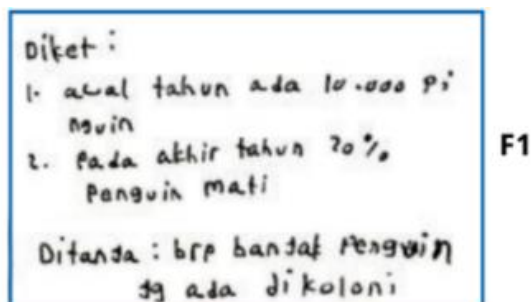 Diket :
1. awal tahun ada 10.000 Pi
nguin
2. Pada akhir tahun 20%
Penguin mati
Ditanya : brp banyak Penguin
yg ada dikoloni
F1